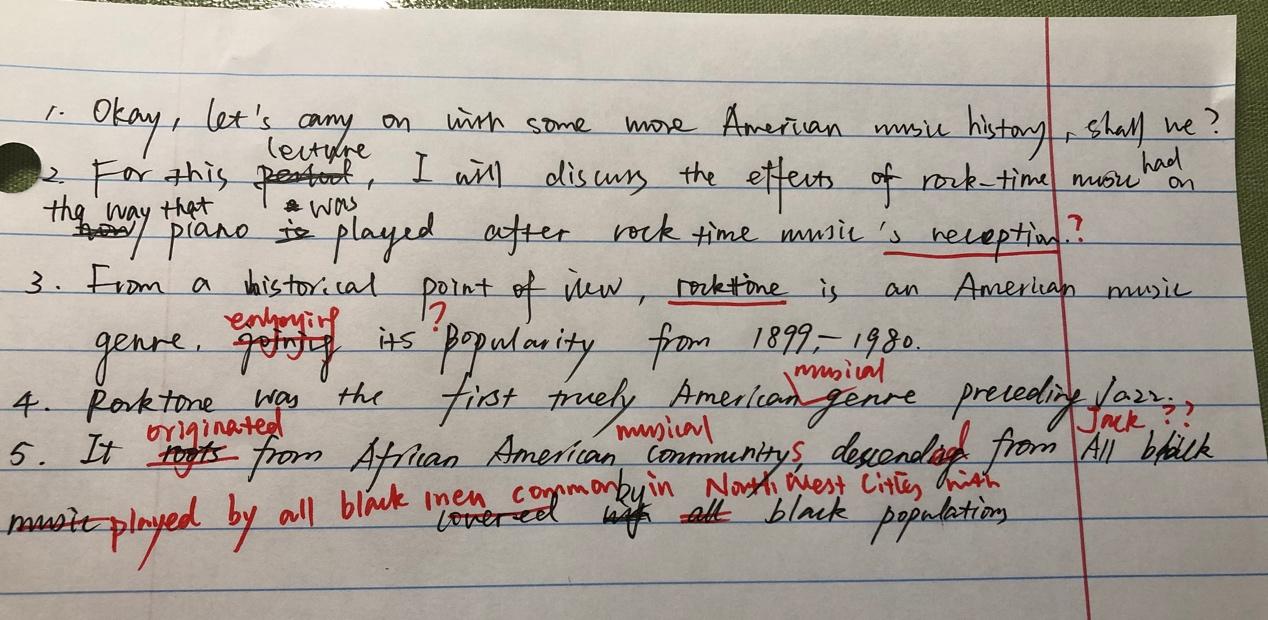 1. Okay, let's carry on with some more American music history, shall we?
lecture
2. For this period, I will discuss the effects of rock-time music had on
the way that was
how piano is played after rock time music's reception.?
3. From a historical point of view, rocktone is an American music
enjoying ?
genre, its popularity from 1899,-1980.
musical
4. Rocktone was the first truely American genre preceding Jazz.
originated musical Jack ??
5. It roots from African American communitys, descended from All black
played by all black men common by in North West Cities with
music covered with all black populations